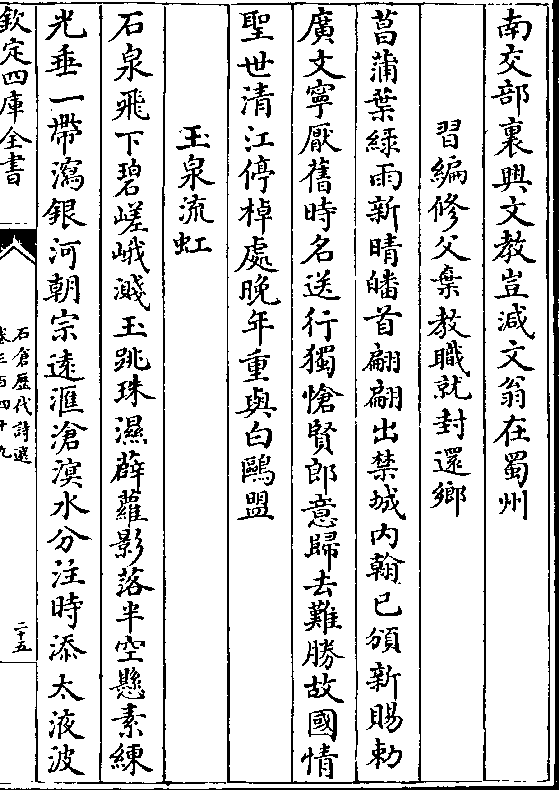 南交部裏興文教豈減文翁在蜀州
習編修父棄教職就封還鄉
菖蒲葉綠雨新晴皤首翩翩出禁城内翰已頒新賜勅
廣文寧厭舊時名送行獨愴賢郎意歸去難勝故國情
聖世清江停棹處晚年重與白鷗盟
玉泉流虹
石泉飛下碧嵯峨濺玉跳珠濕薜蘿影落半空懸素練
光垂一帶瀉銀河朝宗遠滙滄溟水分注時添太液波
欽定四庫全書
石倉歷代詩選
卷三百四十九
二十五